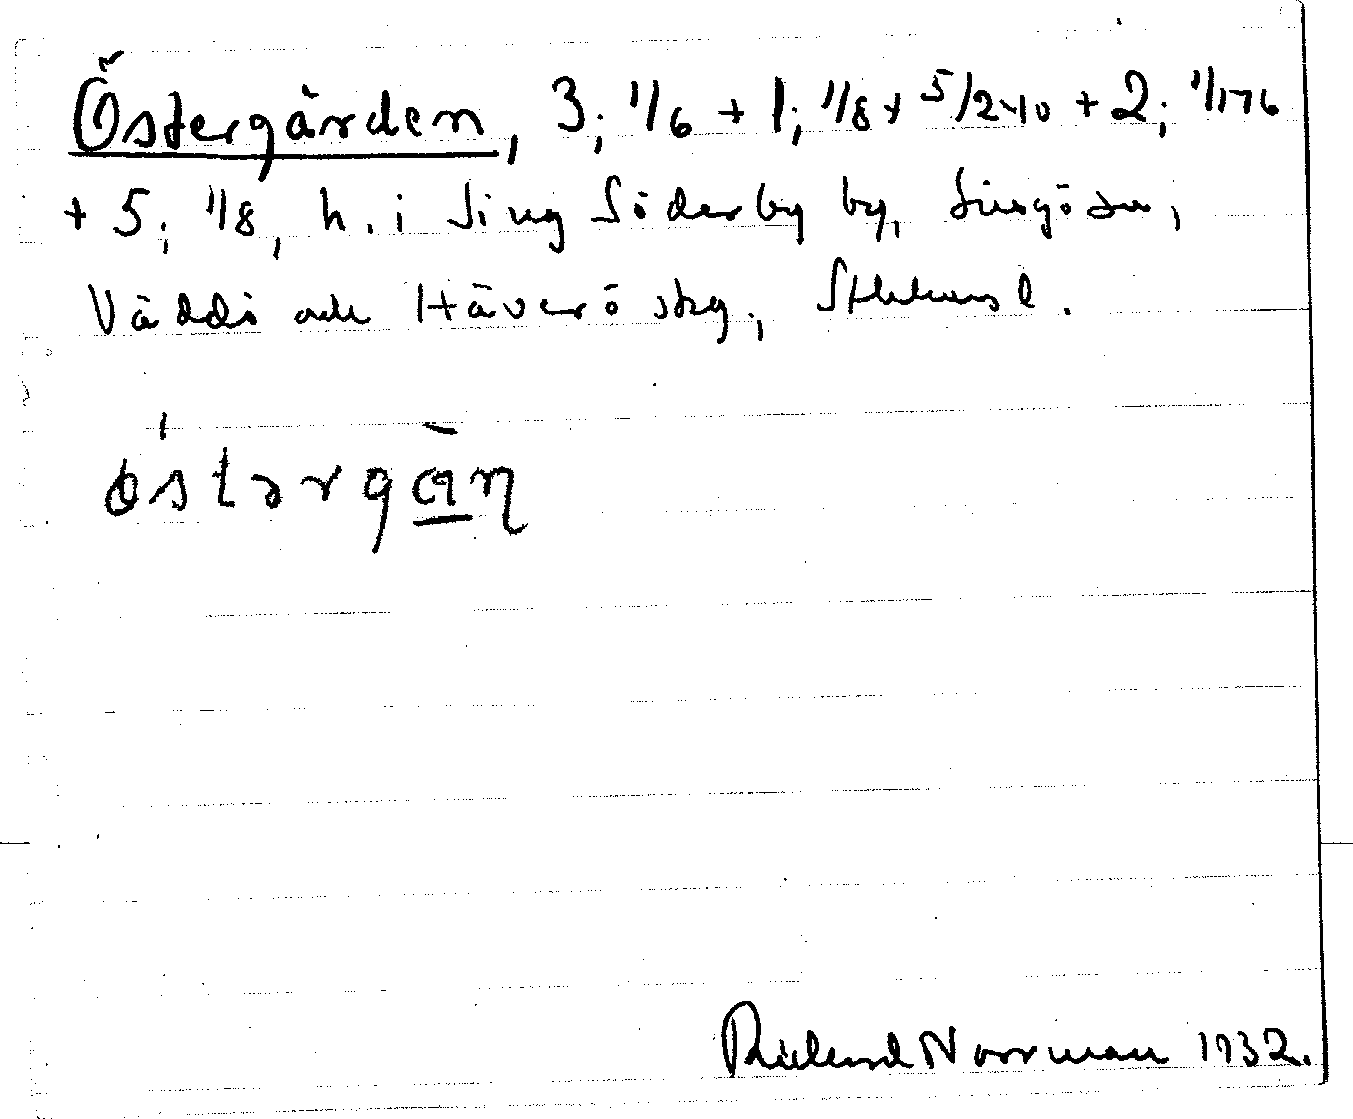 Östergården, 3; 1/6 + 1; 1/8 + 5/240 + 2; 1/176
+ 5; 1/8, h. i Sing Söderby by, Singö sn,
Väddö och Häverö skg., Sthlms l.
östərgån
Rickard Norrman 1932.